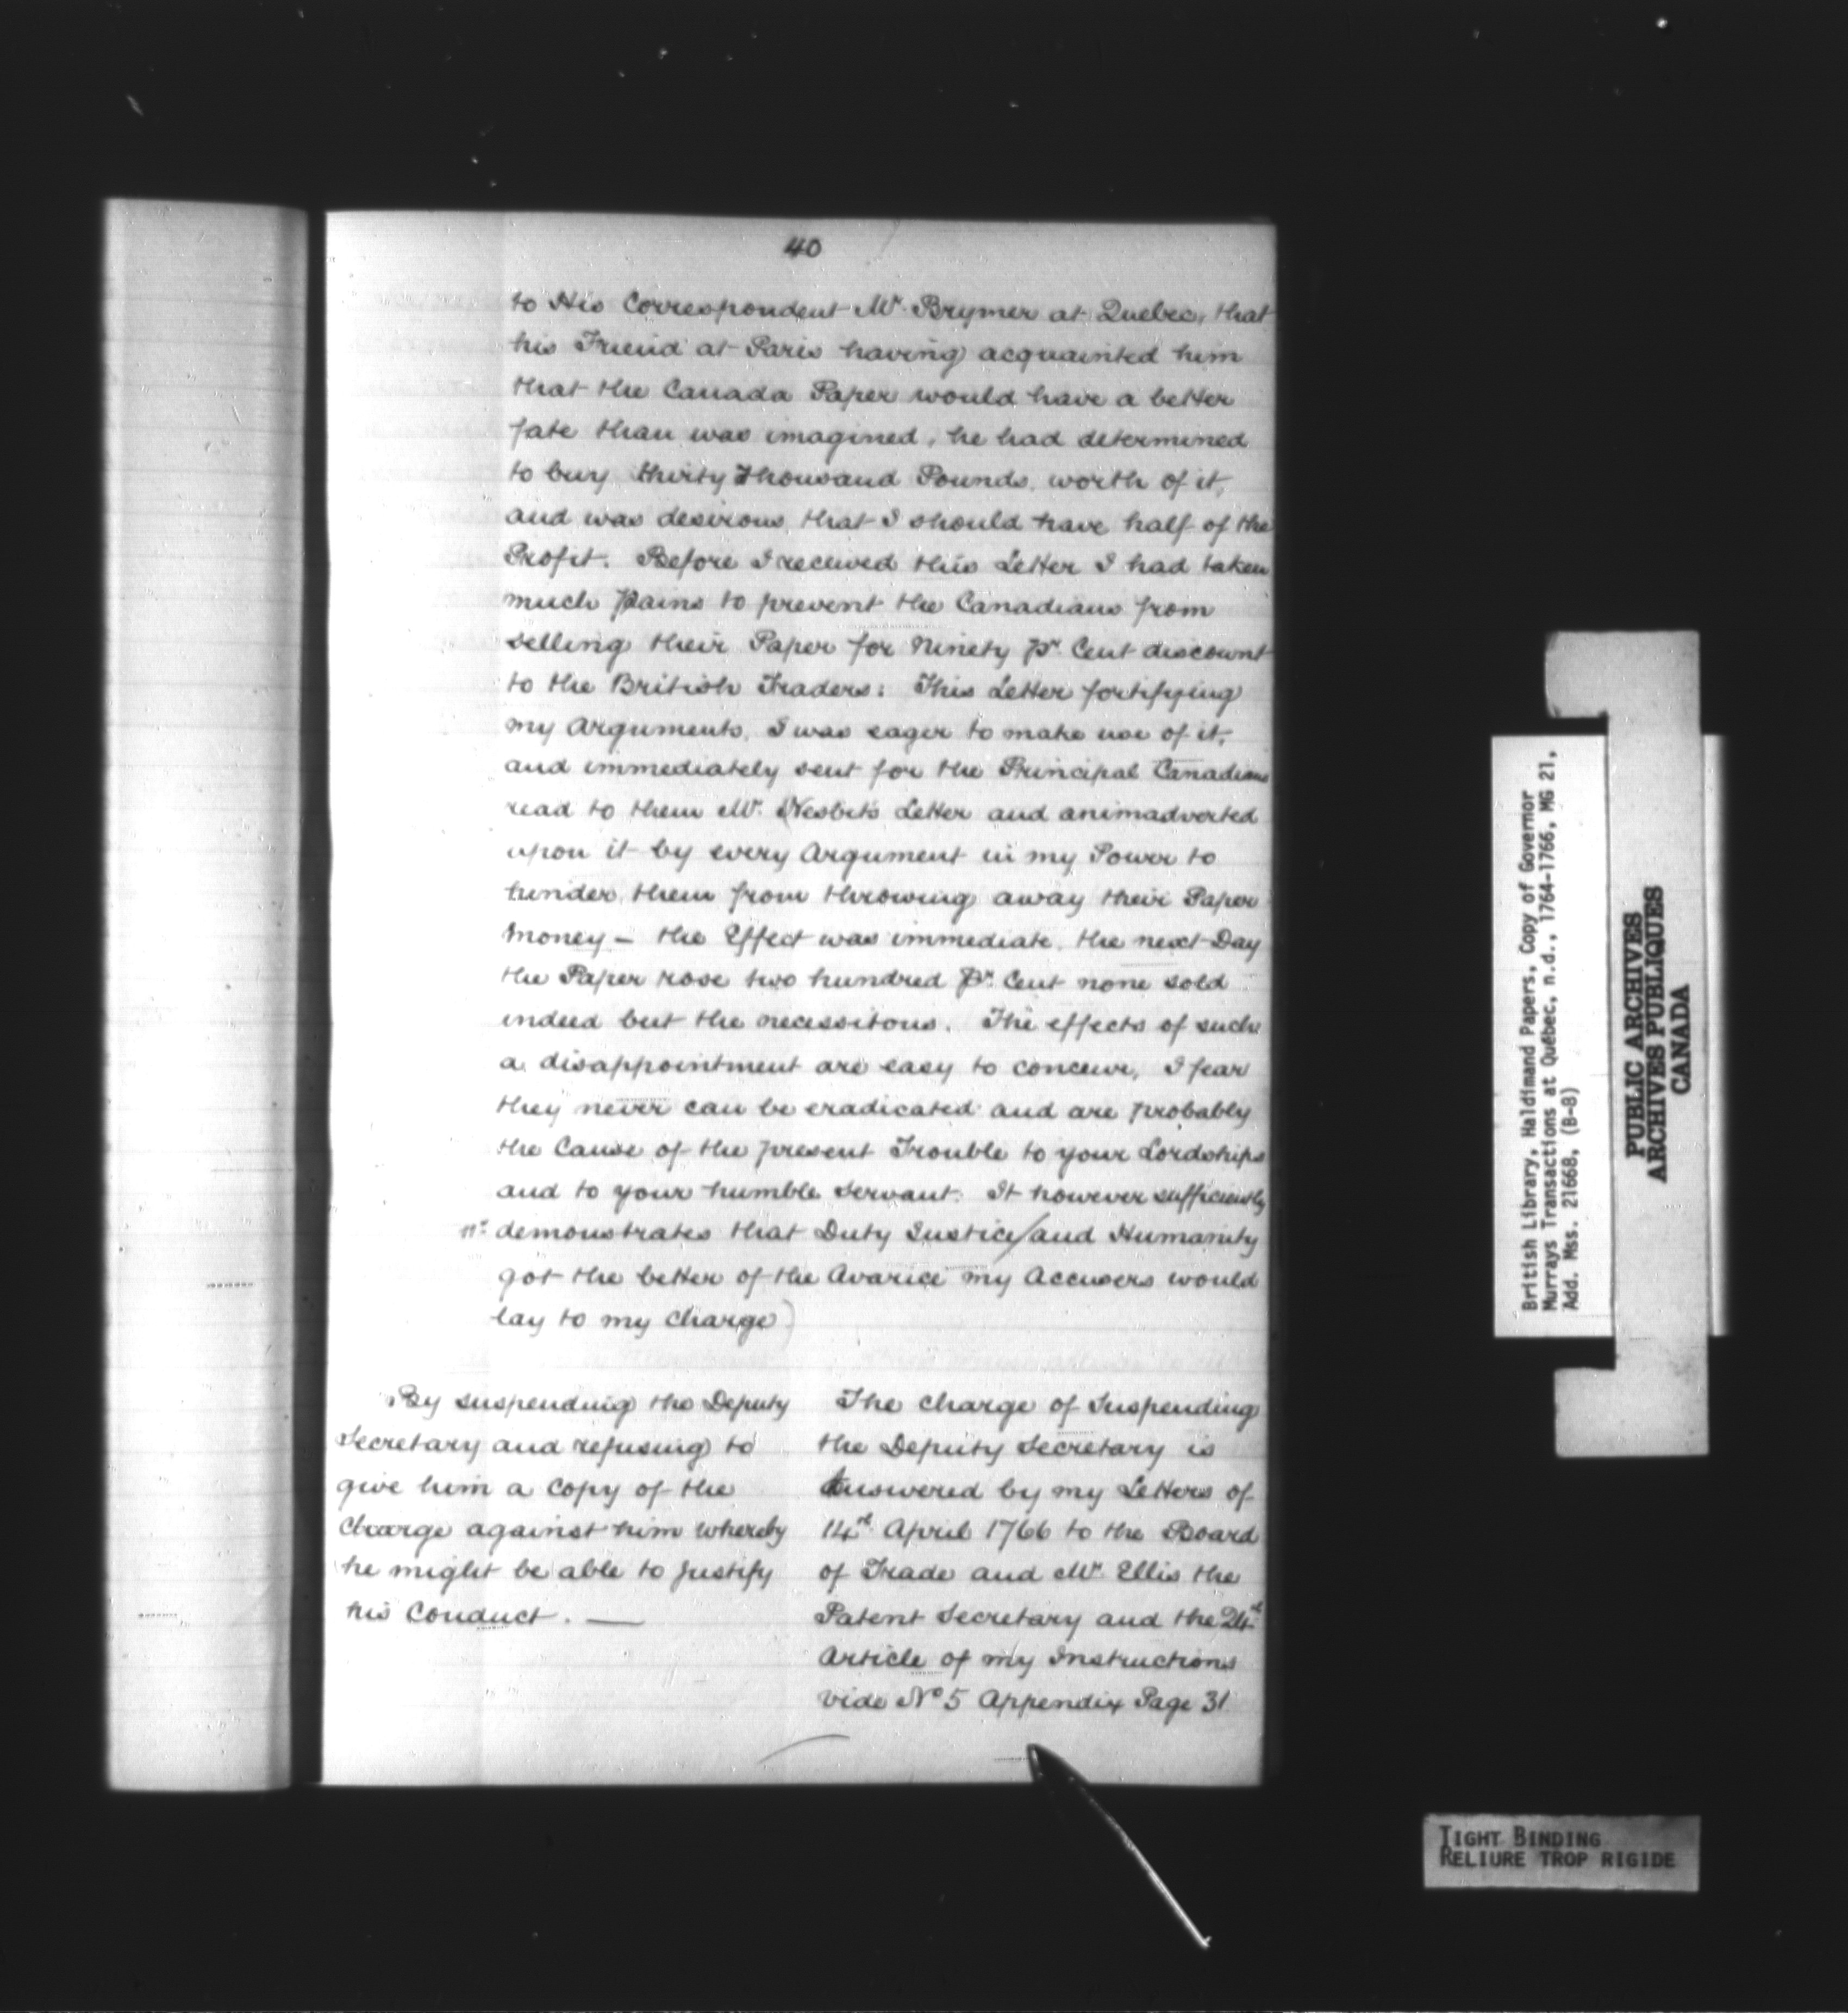 40
to His Correspondent Mr. Brymer at Quebec, that
his Friend at Paris having acquainted him
that the Canada Paper would have a better
fate than was imagined, he had determined
to buy thirty Thousand Pounds worth of it,
and was desirous that I should have half of the
Profit. Before I received this Letter I had taken
much pains to prevent the Canadians from
selling their Paper for Ninety pr. Cent discount
to the British Traders: This Letter fortifying
my Arguments, I was eager to make use of it,
and immediately sent for the Principal Canadians
read to them Mr. Nesbits Letter and animadverted
upon it by every Argument in my Power to
hinder them from throwing away their Paper
Money – the Effect was immediate, the next Day
the Paper rose two hundred pr. Cent none sold
indeed but the necessitous. The effects of such
a disappointment are easy to conceive, I fear
they never can be eradicated and are probably
the Cause of the present Trouble to your Lordships
and to your humble Servant. It however sufficiently
demonstrates that Duty Justice/and Humanity
got the better of the Avarice my Accusers would
lay to my Charge)
By suspending the Deputy
Secretary and refusing to
give him a Copy of the
Charge against him whereby
he might be able to justify
his Conduct. —
The charge of Suspending
the Deputy Secretary is
Answered by my Letters of
14th April 1766 to the Board
of Trade and Mr. Ellis the
Patent Secretary and the 24th
Article of my Instructions
vide No 5 Appendix Page 31
British Library, Haldimand Papers, Copy of Governor
Murrays Transactions at Québec, n.d., 1764-1766, MG 21,
Add. Mss. 21668, (B-8)
PUBLIC ARCHIVES
ARCHIVES PUBLIQUES
CANADA
TIGHT BINDING
RELIURE TROP RIGIDE